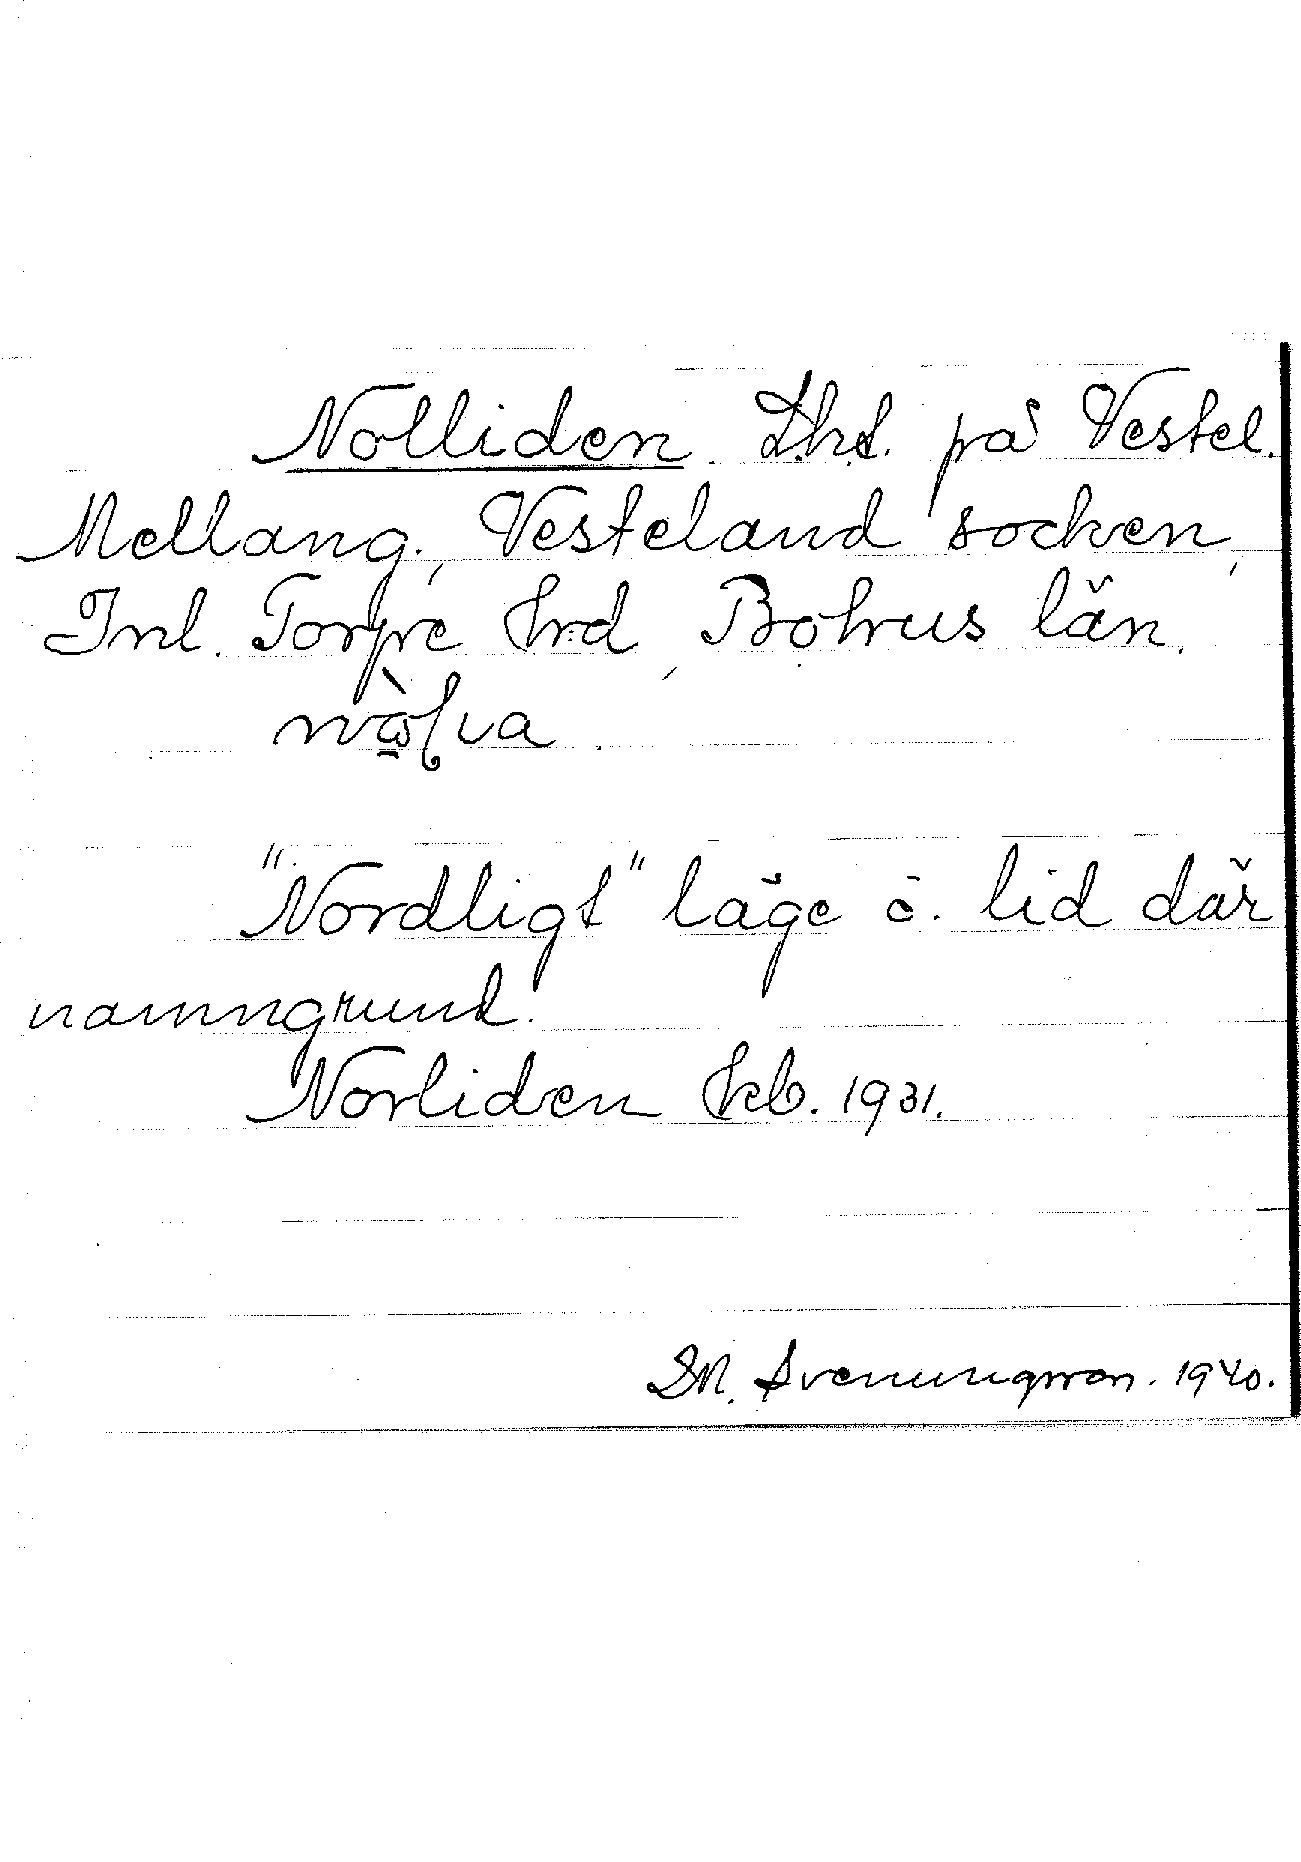 Nolliden Lht. på Vestel.
Mellang., Vesteland socken,
Inl. Torpe hrd, Bohus län.
"Nordligt" läge o. lid där
namngrund.
Norliden Jrb. 1931.
Svenungsson. 1940.